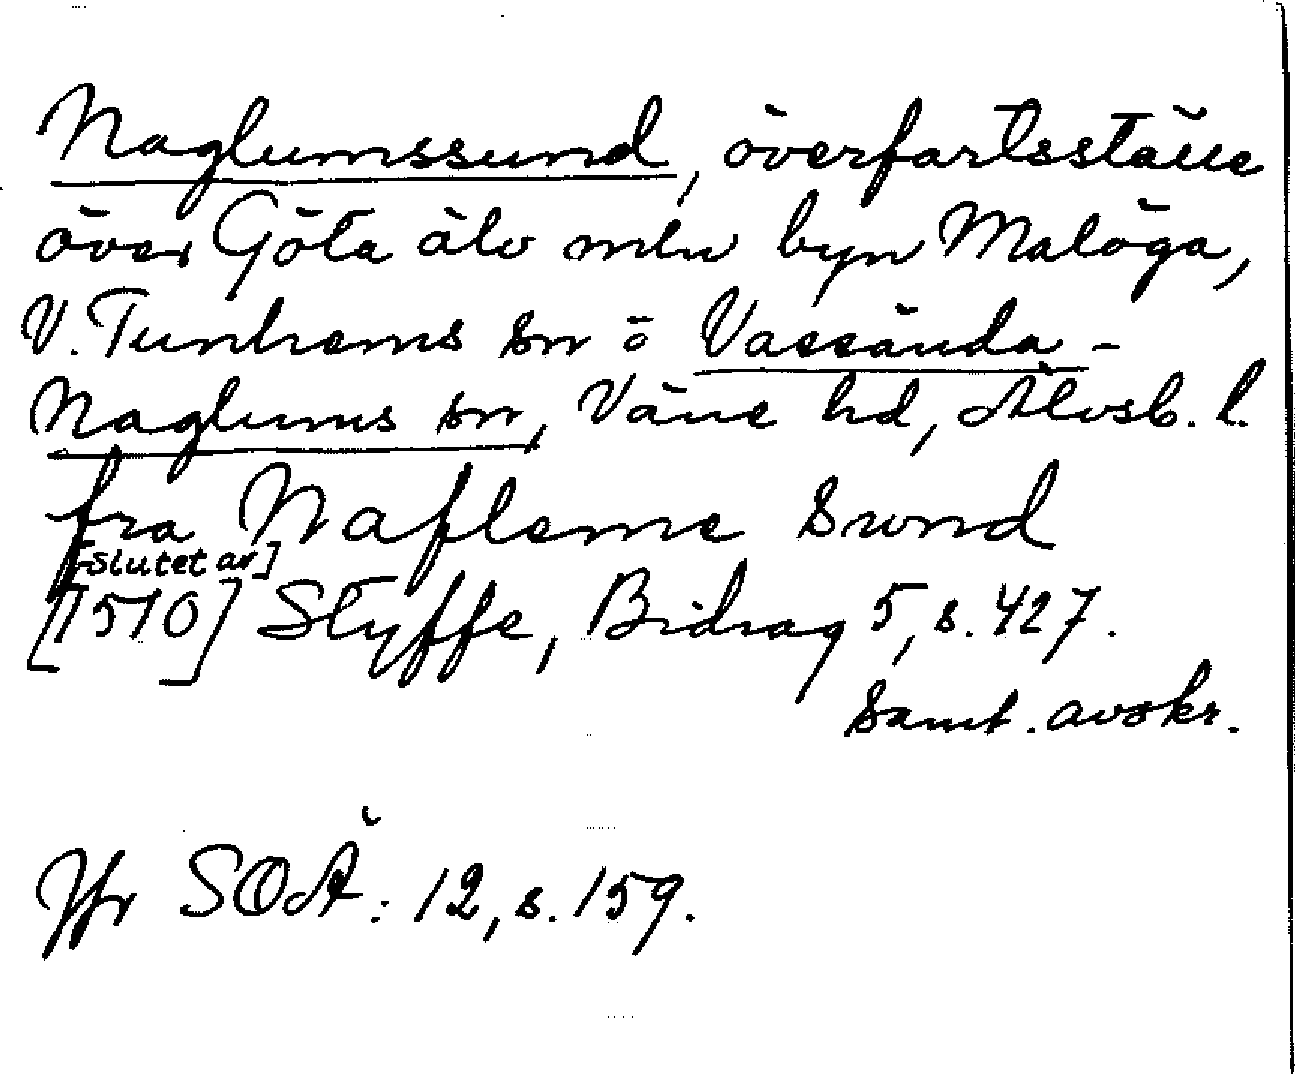 Naglumssund, överfartsställe
över Göta älv mln byn Malöga,
V. Tunhems sn o Vassända-
Naglums sn, Väne hd, Älvsb. l.
fra Nafleme Sund
[slutet av]
[1510] Styffe, Bidrag 5, s. 427.
Samt. avskr.
Jfr SOÄ: 12, s. 159.